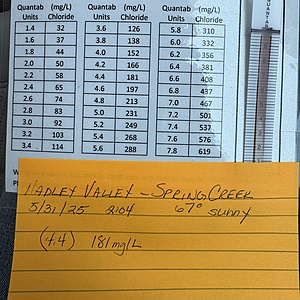 Quantab (mg/L) Quantab (mg/L) Quantab (mg/L)
Units Chloride Units Chloride Units Chloride
1.4 32 3.6 126 5.8 310
1.6 37 3.8 138 6.0 332
1.8 44 4.0 152 6.2 356
2.0 50 4.2 166 6.4 381
2.2 58 4.4 181 6.6 408
2.4 65 4.6 197 6.8 437
2.6 74 4.8 213 7.0 467
2.8 83 5.0 231 7.2 501
3.0 92 5.2 249 7.4 537
3.2 103 5.4 268 7.6 576
3.4 114 5.6 288 7.8 619
QUANTAB
HADLEY VALLEY - SPRING CREEK
5/31/25 2:04 67° sunny
(4.4) 181 mg/L